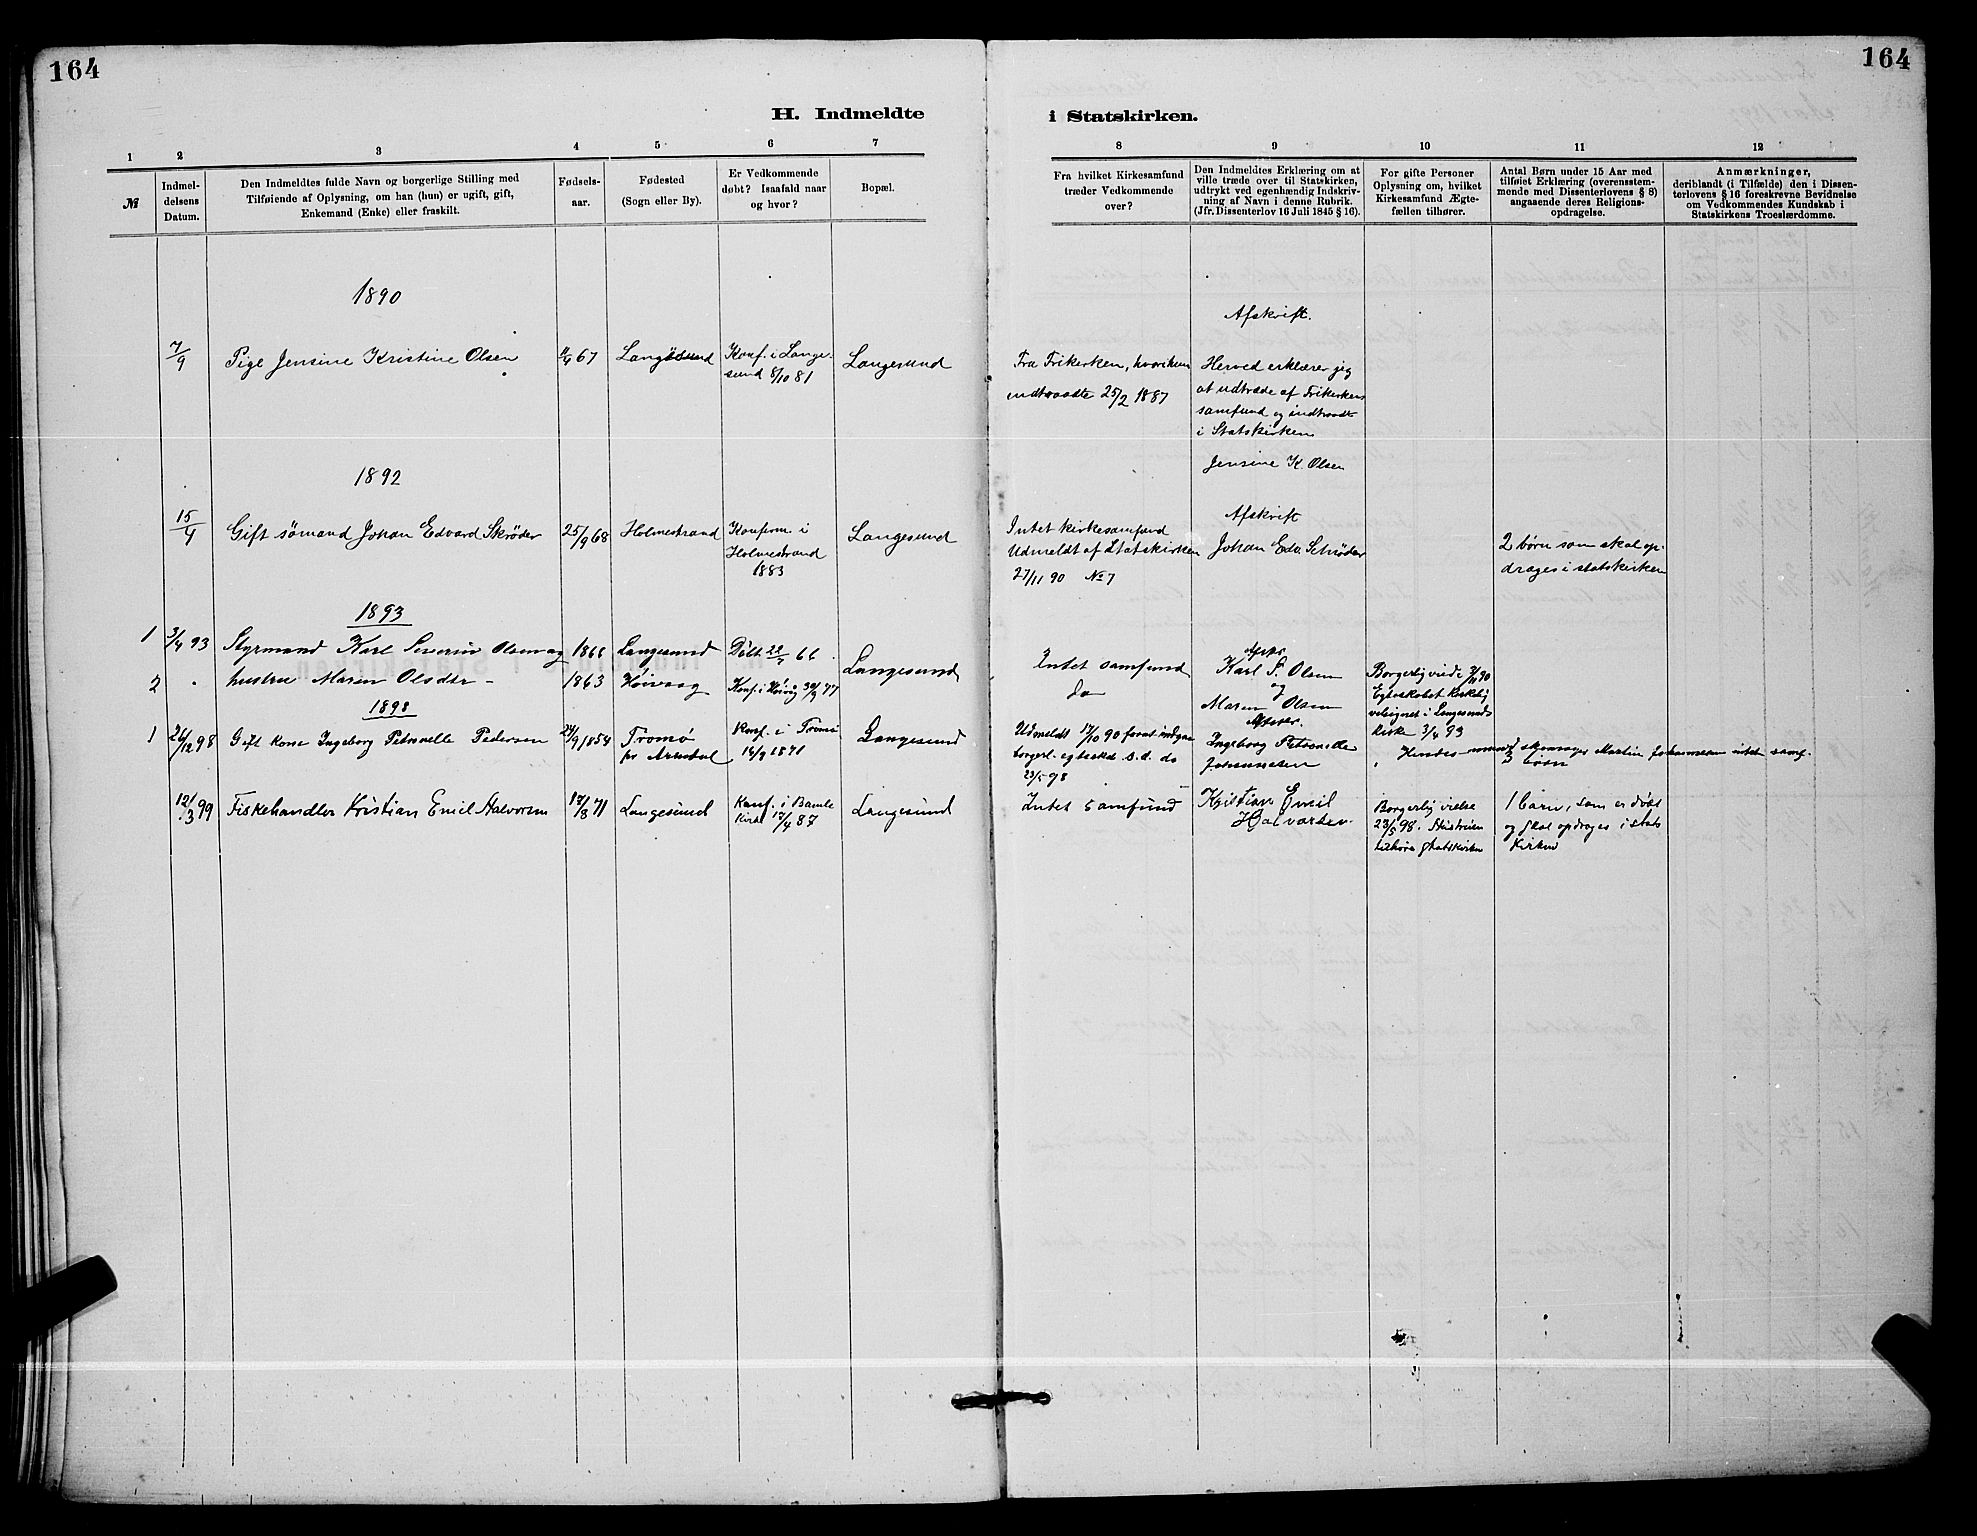 164
164
H. Indmeldte
i Statskirken.
1 2 3 4 5 6 7
8 9 10 11 12
№
Indmel-
delsens
Datum.
Den Indmeldtes fulde Navn og borgerlige Stilling med
Tilføiende af Oplysning, om han (hun) er ugift, gift,
Enkemand (Enke) eller fraskilt.
Fødsels-
aar.
Fødested
(Sogn eller By).
Er Vedkommende
døbt? Isaafald naar
og hvor?
Bopæl.
Fra hvilket Kirkesamfund
træder Vedkommende
over?
Den Indmeldtes Erklæring om at
ville træde over til Statskirken,
udtrykt ved egenhændig Indskriv-
ning af Navn i denne Rubrik.
(Jfr. Dissenterlov 16 Juli 1845 § 16).
For gifte Personer
Oplysning om, hvilket
Kirkesamfund Ægte-
fællen tilhører.
Antal Børn under 15 Aar med
tilføiet Erklæring (overensstem-
mende med Dissenterlovens § 8)
angaaende deres Religions-
opdragelse.
Anmærkninger,
deriblandt (i Tilfælde) den i Dissen-
terlovens § 16 foreskrevne Bevidnelse
om Vedkommendes Kundskab i
Statskirkens Troeslærdomme.
1890
7/9
Pige Jensine Kristine Olsen
67
Langesund
Konf. i Lange-
sund 8/10 81
Langesund
Fra Frikerken, hvori hun
indtraadte 25/2 1887
Afskrift.
Herved erklærer jeg
at udtræde af Frikerkens
samfund og indtraadte
i Statskirken
Jensine K. Olsen
1892
15/4
Gift sömand Johan Edvard Skröder
25/9 68
Holmestrand
Konfirm. i
Holmestrand
1883
Langesund
Intet kirkesamfund
Udmeldt af Statskirken
27/11 90 № 7
Afskrift
Johan Edv Schrøder
2 børn som skal op-
drages i statskirken
1893
1 3/4 93
Styrmand Karl Severin Olsen og
1866
Langesund
Døbt 22/7 66
Langesund
Intet samfund
Karl S. Olsen
og
Borgerlig viede 90
Egteskabet kirkelig
velsignet i Langesunds
kirke 3/4 93
2
hustru Maren Olsdtr -
1863
Høivaag
Konf. i Høivåg 30/9 77
do
Maren Olsen
1898
1 26/12 98
Gift kone Ingeborg Petronelle Pedersen
24/9 1854
Tromø
pr Arendal
Konf. i Tromø
14/9 1871
Langesund
Udmeldt 17/10 90 forat indgaa
borgerl. egteskb s. d. do
23/5 98
Ingeborg Petronelle
Johannesen
Hendes mand skomager Martin Johannesen intet samf.
3 børn
12/3 99
Fiskehandler Kristian Emil Halvorsen
17/8 71
Langesund
Konf. i Bamle
Kirke 17/4 87
Langesund
Intet samfund
Kristian Emil
Halvorsen.
Borgerlig vielse
23/5 98. Hustruen
tilhører Statskirken
1 barn, som er døbt
og skal opdrages i stats
Kirken